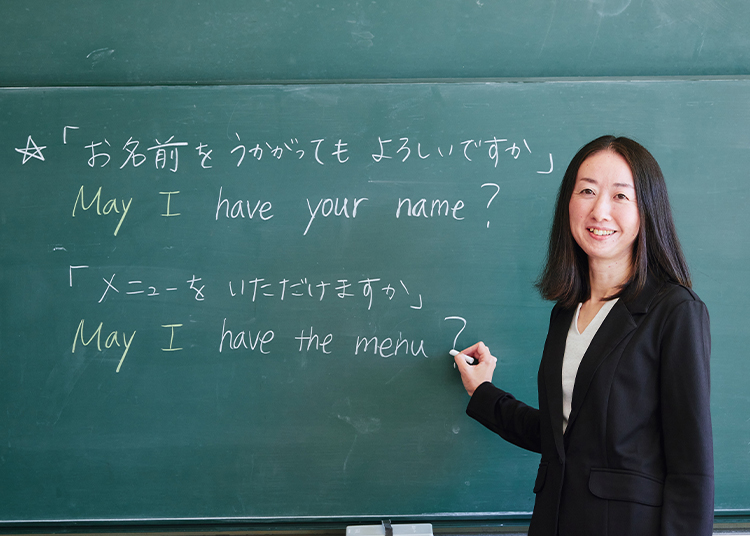 ☆「お名前をうかがってもよろしいですか」
May I have your name?
「メニューをいただけますか」
May I have the menu?